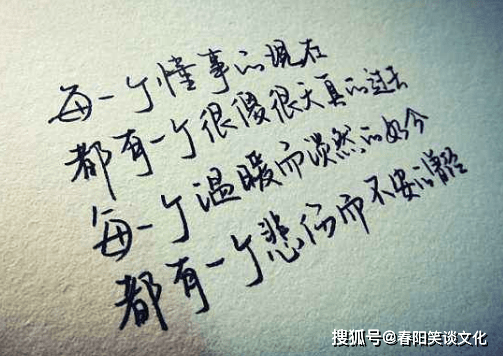 每一个懂事的现在
都有一个很傻很天真的过去
每一个温暖而淡然的如今
都有一个悲伤而不安的曾经
搜狐号@春阳笑谈文化